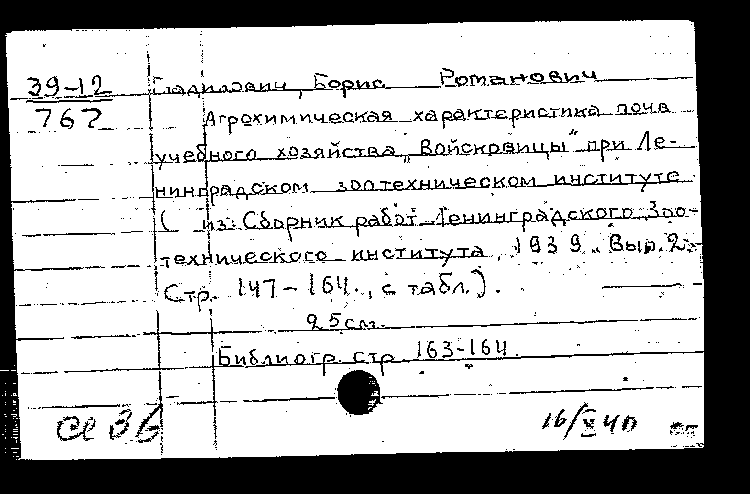 39-12 Гладилович, Борис Романович
762 Агрохимическая характеристика почв
учебного хозяйства „Войсковицы" при Ле-
нинградском зоотехническом институте
( из: Сборник работ Ленинградского Зоо-
технического института, 1939. Вып. 2.-
Стр. 147-164., с табл.).
25см.
Библиогр. стр. 163-164.
16/V 40